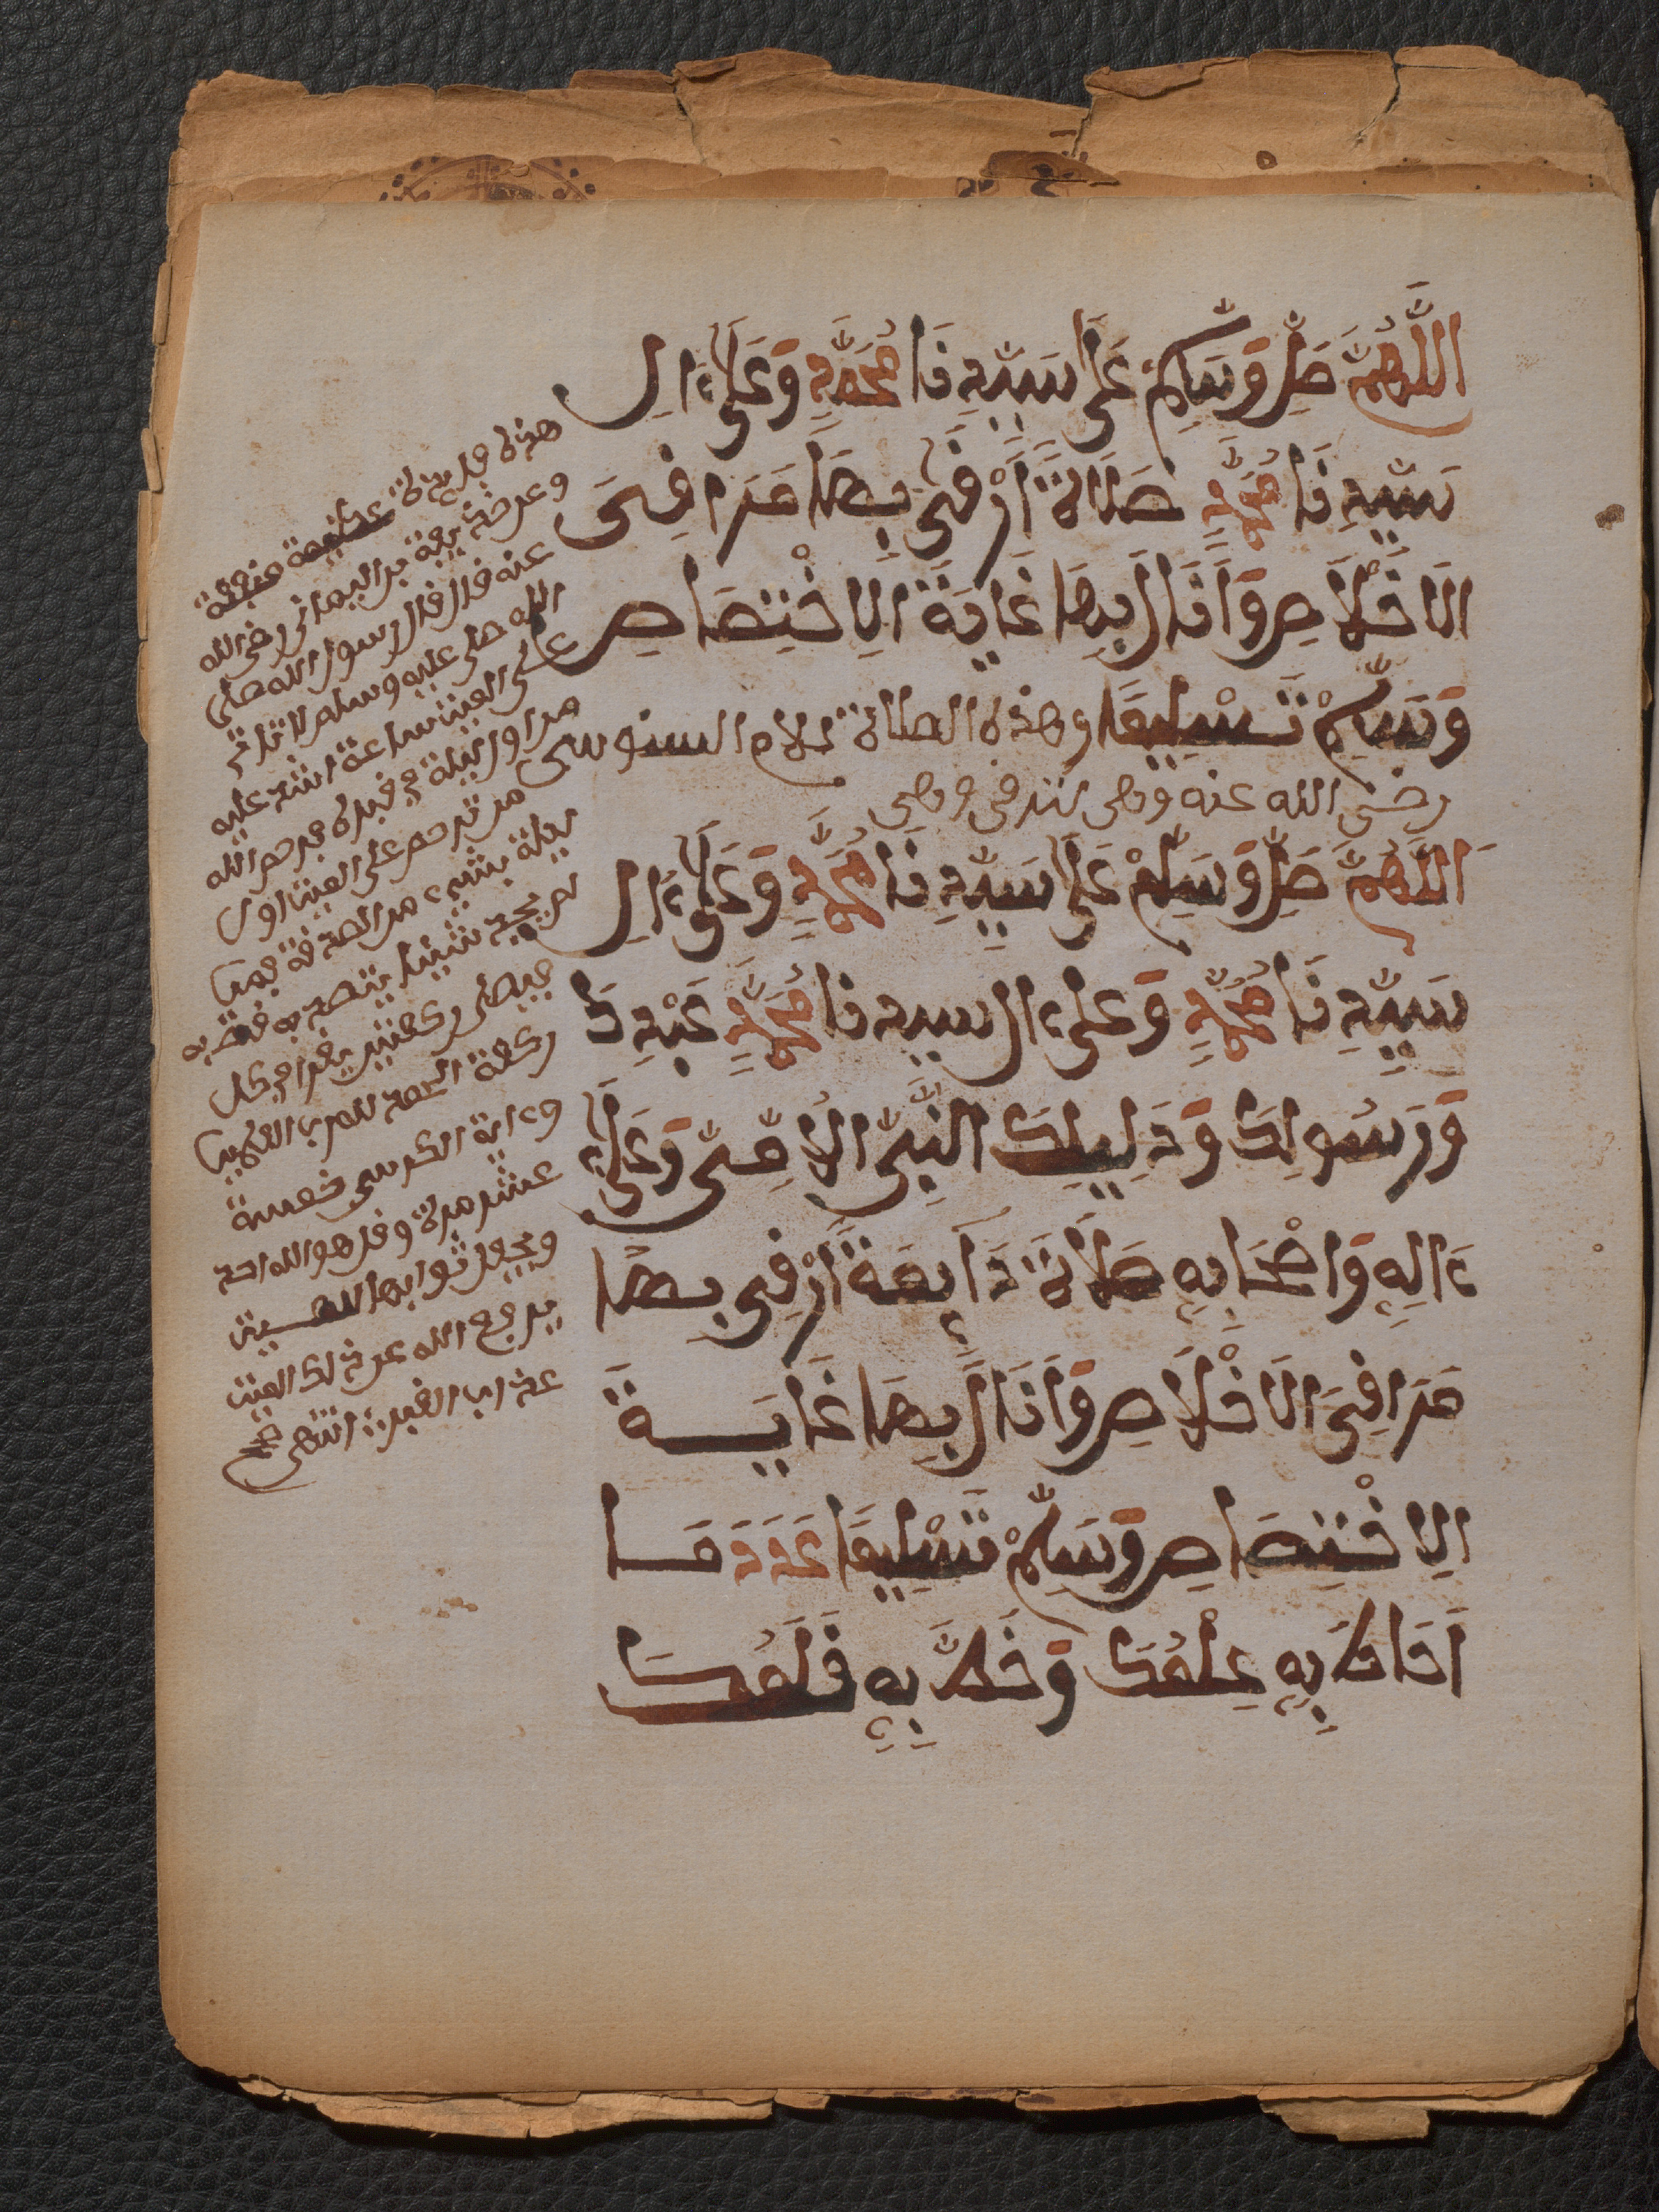 اللَّهُمَّ صَلِّ وَسَلِّمْ عَلَى سَيِّدِنَا مُحَمَّدٍ وَعَلَى ءَالِ
سَيِّدِنَا مُحَمَّدٍ صَلَاةً أَرْقَى بِهَا مَرَاقِيَ
الاخْلَاصِ وَأَنَالُ بِهَا غَايَةَ الِاخْتِصَاصِ
وَسَلِّمْ تَسْلِيمًا وهذه الصلاة للامام السنوسى
رضي الله عنه وهى
اللَّهُمَّ صَلِّ وَسَلِّمْ عَلَى سَيِّدِنَا مُحَمَّدٍ وَعَلَى ءَالِ
سَيِّدِنَا مُحَمَّدٍ وَعلى ءال سيدنا مُحَمَّدٍ عَبْدِكَ
وَرَسُولِكَ وَدَلِيلِكَ النَّبِيِّ الأُمِّيِّ وَعَلَى
ءَالِهِ وَاصْحَابِهِ صَلَاةً دَايِمَةً أَرْقِى بِهَا
مَرَاقِيَ الاخْلَاصِ وَأَنَالُ بِهَا غَايَةَ
الِاخْتِصَاصِ وَسَلِّمْ تَسْلِيمًا عَدَدَ مَا
أَحَاطَ بِهِ عِلْمُكَ وَخَطَّ بِهِ قَلَمُكَ
هذه عظيمة
وعن حذيفة بن اليمانى رضي الله
عنه قال قال رسول الله صلى
الله صلى عليه وسلم لا تاتى
على الميت ساعة اشد عليه
من اول ليلة فى قبره فرحم الله
من ترحم على الميت اول
ليلة بشيء من الصدقة فمن
لم يجد شيئا يتصدق به
فيصلى ركعتين يقرا فى كل
ركعة الحمد لله رب العلمين
وءاية الكرسى خمسة
عشر مرة وقل هو الله احد
ويجعل ثوابها للميت
يرفع الله عن ذلك الميت
عذاب القبر انتهى صح